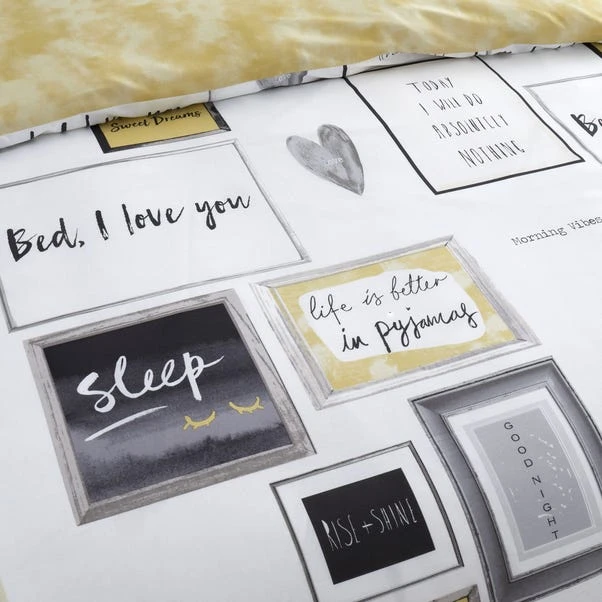 Sweet Dreams
Love
TODAY
I WILL DO
ABSOLUTELY
NOTHING
Bed, I love you
Morning Vibes
life is better
in pyjamas
sleep
GOOD NIGHT
RISE + SHINE